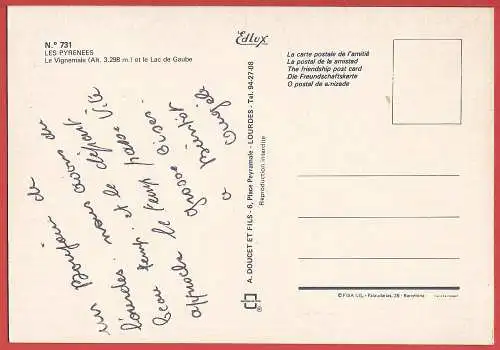 N.° 731
LES PYRENEES
Le Vignemale (Alt. 3.298 m.) et le Lac de Gaube
un Bonjour de
Lourdes nous avions du
Beau temp et le départ
le temp passe vite
grosse Bises
a Bientôt
Edlux
A. DOUCET ET FILS - 6, Place Peyramale - LOURDES - Tel. 94-27-08
Reproduction interdite
La carte postale de l'amitié
La postal de la amistad
The friendship post card
Die Freundschaftskarte
O postal de amizade
© FISA I.G. - Palaudarias, 26 - Barcelona